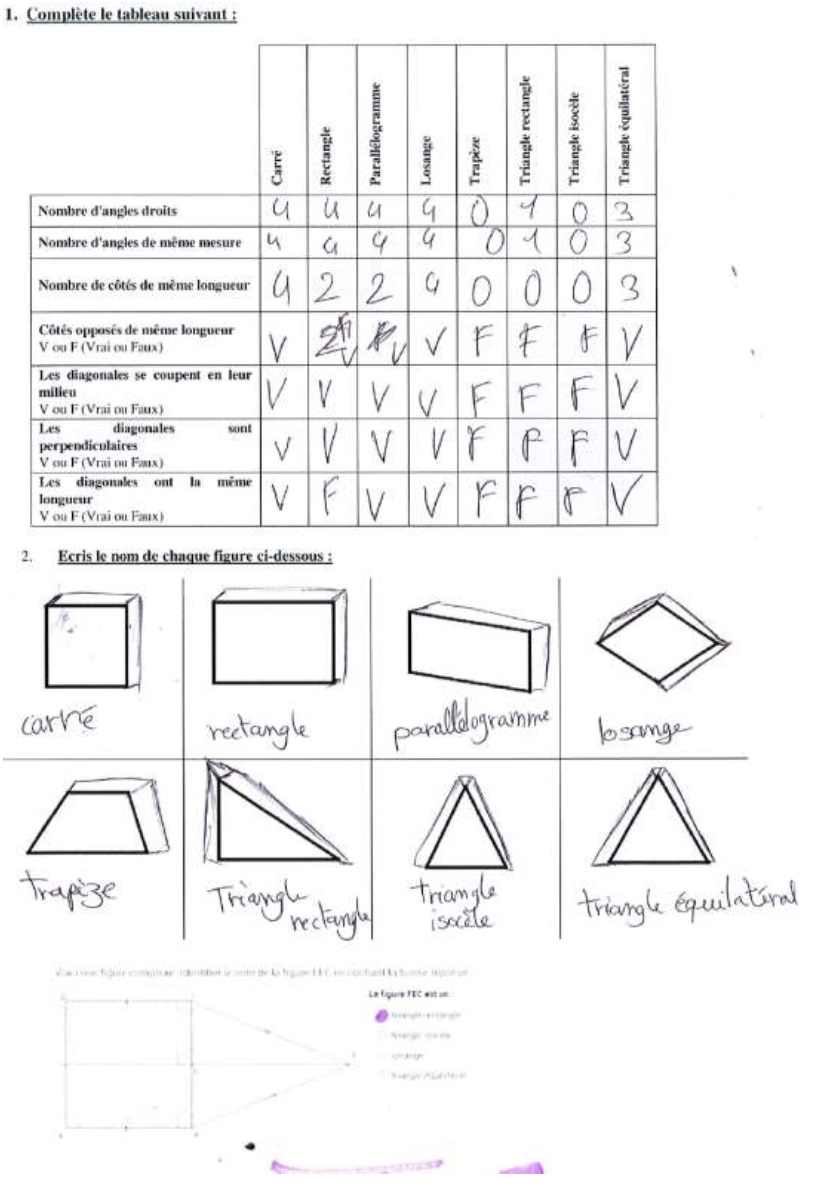 1. Complète le tableau suivant :
Carré Rectangle Parallélogramme Losange Trapèze Triangle rectangle Triangle isocèle Triangle équilatéral
Nombre d'angles droits 4 4 4 4 0 1 0 3
Nombre d'angles de même mesure 4 4 4 4 0 1 0 3
Nombre de côtés de même longueur 4 2 2 4 0 0 0 3
Côtés opposés de même longueur
V ou F (Vrai ou Faux) V V V V F F F V
Les diagonales se coupent en leur
milieu
V ou F (Vrai ou Faux) V V V V F F F V
Les diagonales sont
perpendiculaires
V ou F (Vrai ou Faux) V V V V F F F V
Les diagonales ont la même
longueur
V ou F (Vrai ou Faux) V F V V F F F V
2. Ecris le nom de chaque figure ci-dessous :
carré rectangle parallélogramme losange
trapèze Triangle rectangle triangle isocèle triangle équilatéral
La figure FEC est un :
triangle rectangle
triangle isocèle
losange
triangle équilatéral